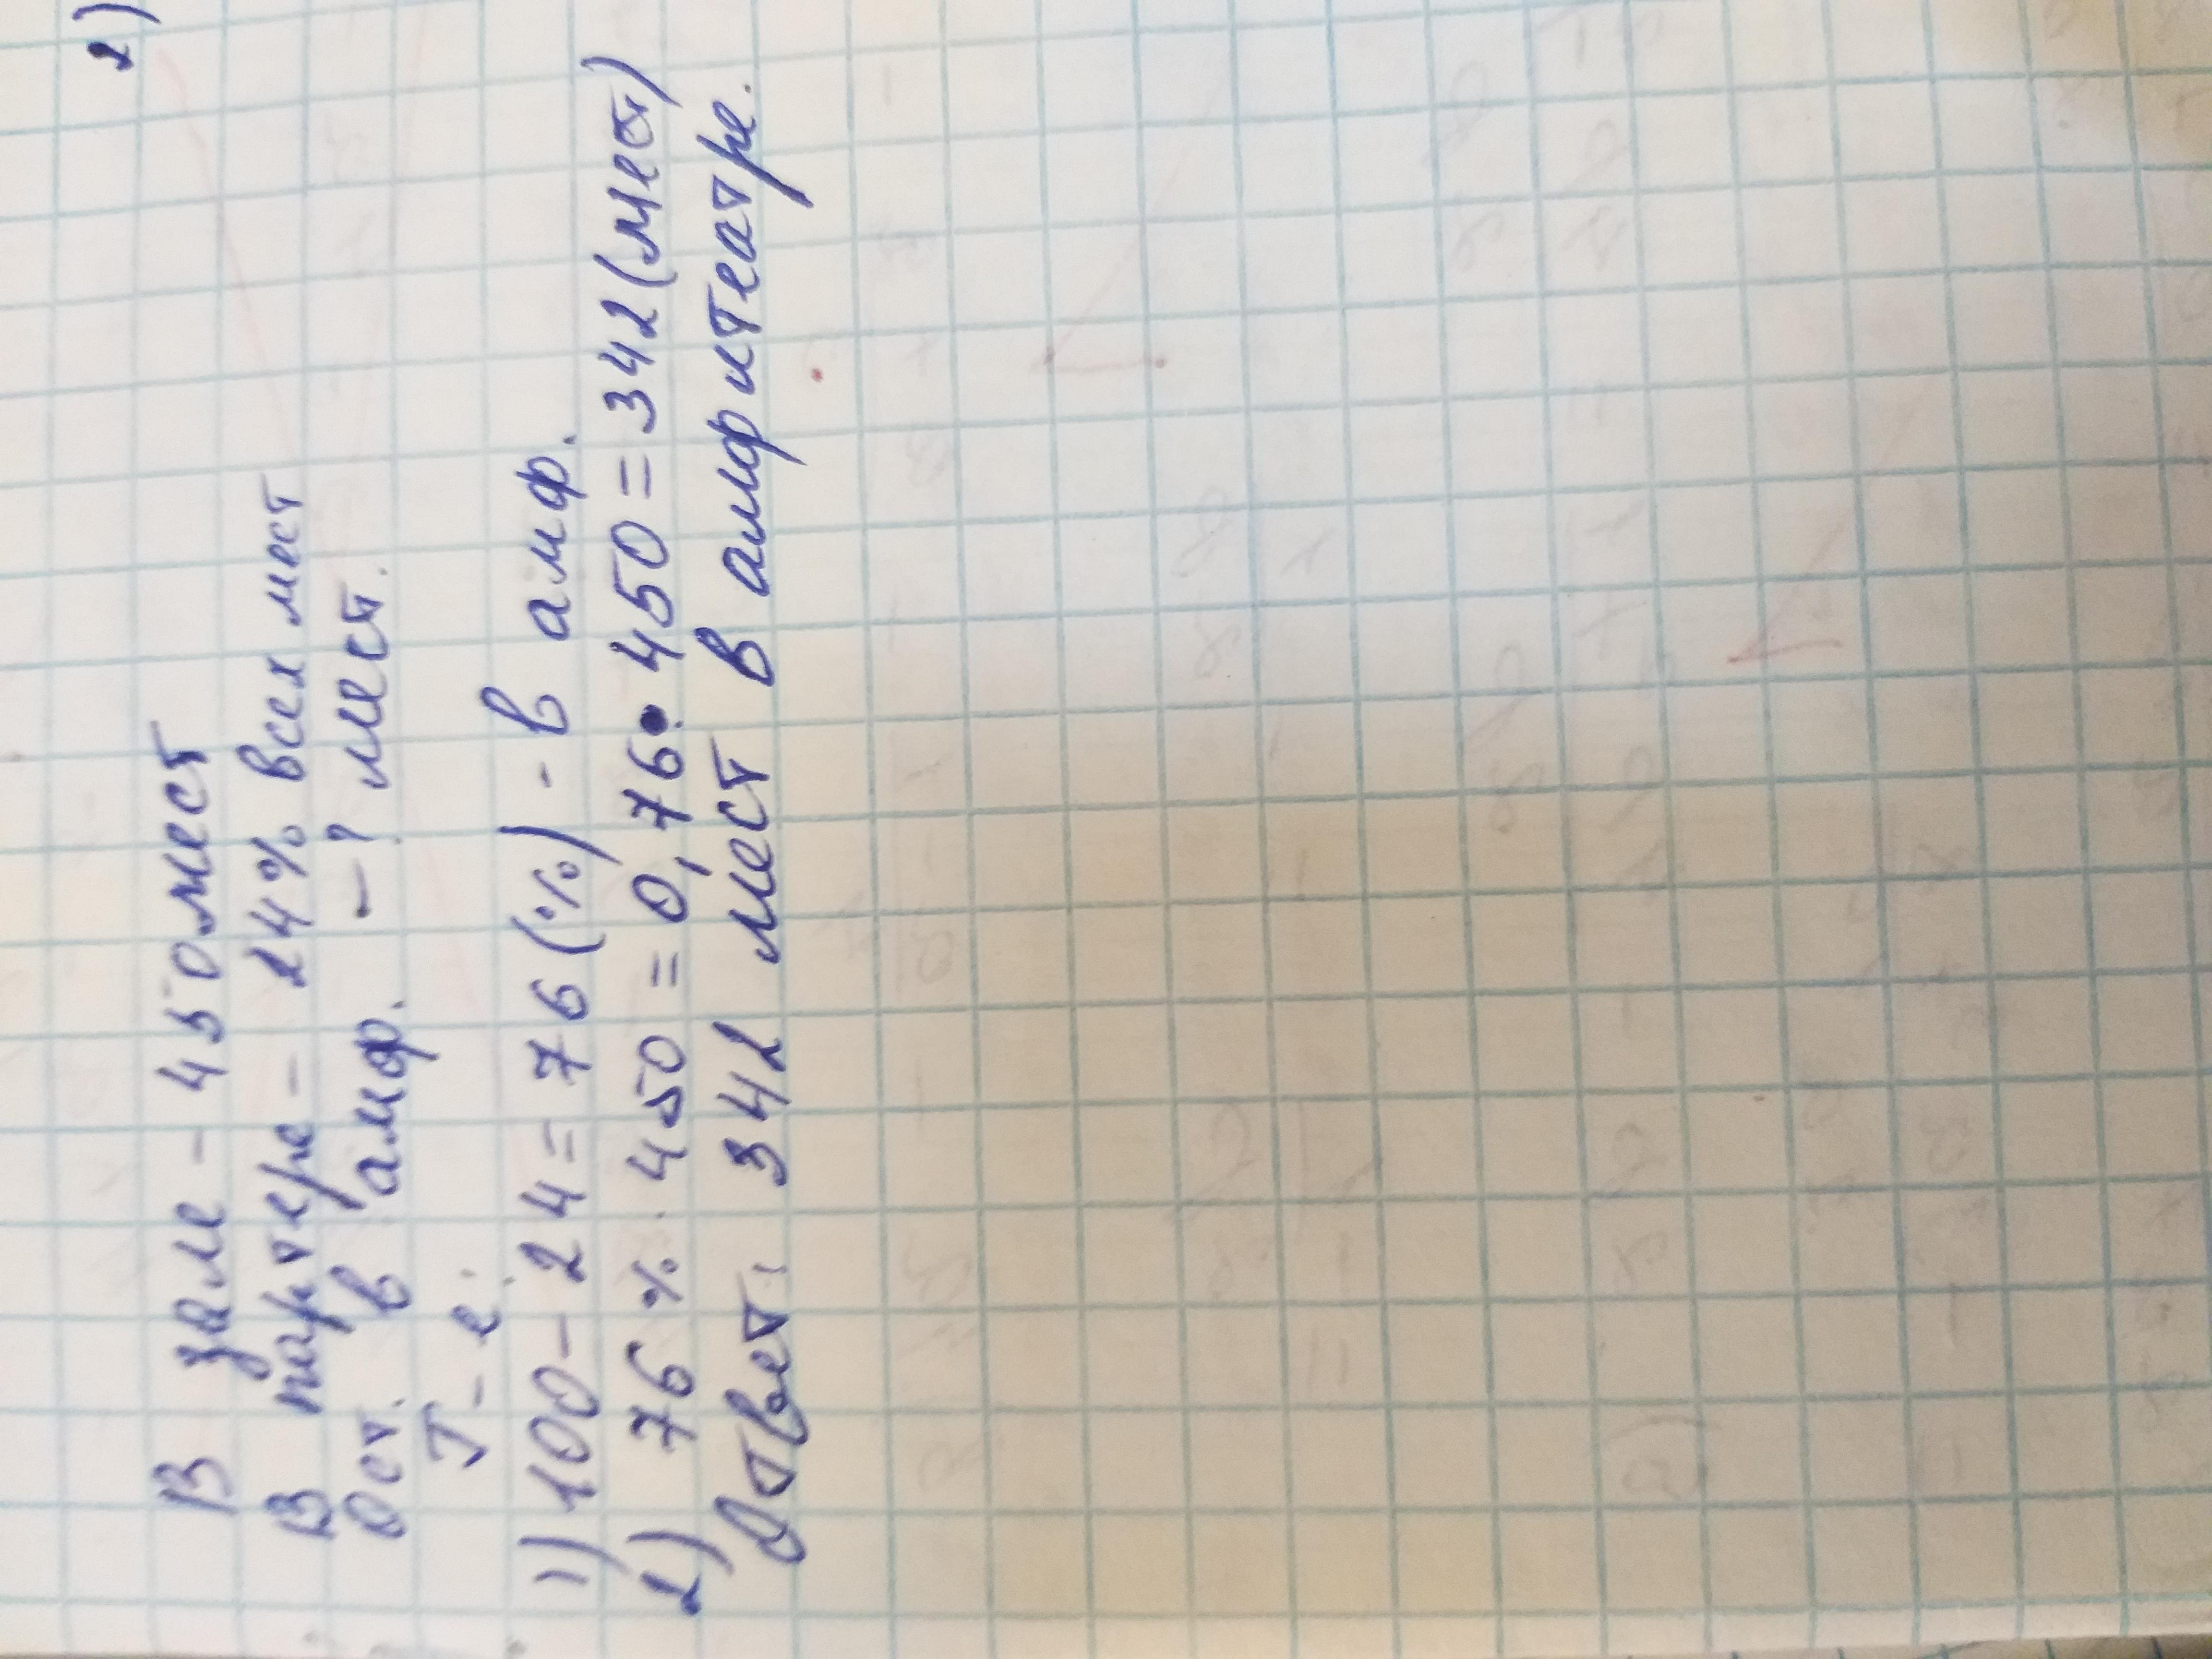 2)
В зале - 450 мест
В партере - 24% всех мест
Ост. в амф. - ? мест.
Т-е:
1) 100 - 24 = 76 (%) - в амф.
2) 76% · 450 = 0,76 · 450 = 342 (мест)
Ответ: 342 мест в амфитеатре.